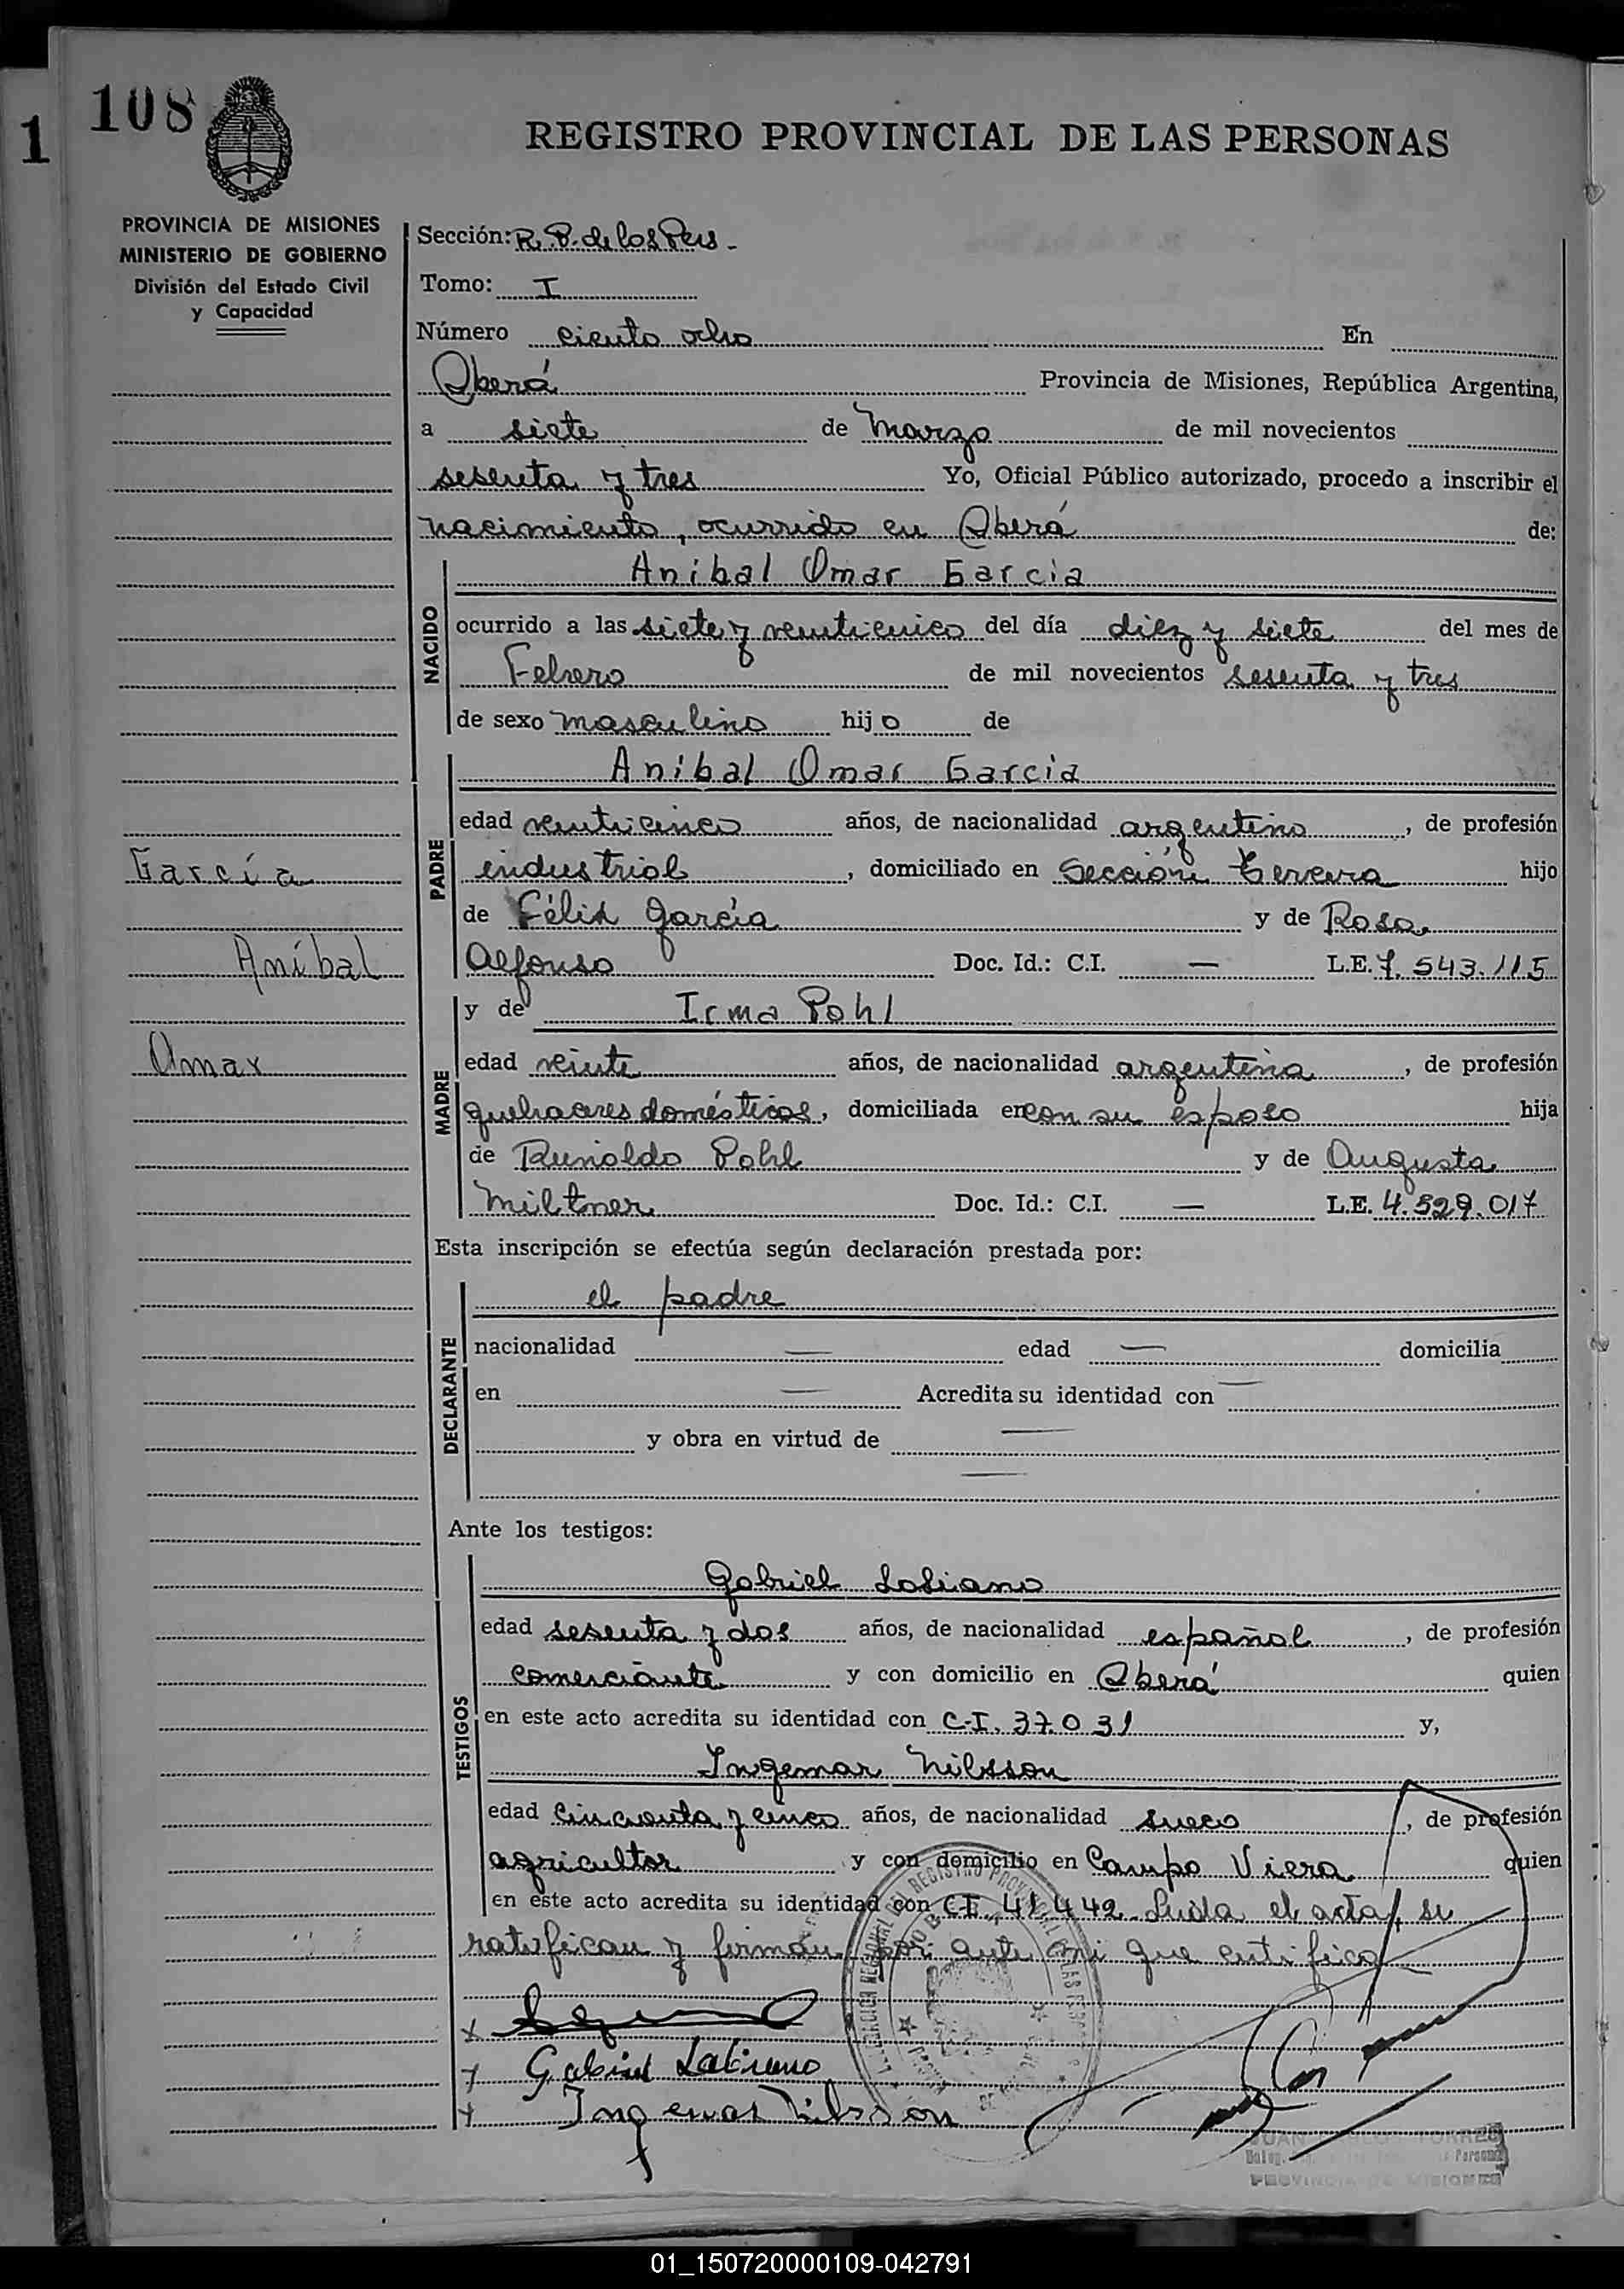 108
1
REGISTRO PROVINCIAL DE LAS PERSONAS
PROVINCIA DE MISIONES
MINISTERIO DE GOBIERNO
División del Estado Civil
y Capacidad
Sección: R. P. de las Pers -
Tomo: I
Número ciento ocho En
Oberá Provincia de Misiones, República Argentina,
a siete de Marzo de mil novecientos
sesenta y tres Yo, Oficial Público autorizado, procedo a inscribir el
nacimiento, ocurrido en Oberá de:
NACIDO
Anibal Omar Garcia
ocurrido a las siete y veinticinco del día diez y siete del mes de
Febrero de mil novecientos sesenta y tres
de sexo masculino hijo de
PADRE
Anibal Omar Garcia
edad veinticinco años, de nacionalidad argentino, de profesión
industrial, domiciliado en Sección tercera hijo
de Félix García y de Rosa
Alfonso Doc. Id.: C.I. — L.E. 7.543.115
García
Aníbal
Omar
MADRE
y de Irma Pohl
edad veinte años, de nacionalidad argentina, de profesión
quehaceres domésticos, domiciliada en con su esposo hija
de Reinoldo Pohl y de Augusta
Miltner Doc. Id.: C.I. — L.E. 4.529.017
Esta inscripción se efectúa según declaración prestada por:
DECLARANTE
el padre
nacionalidad — edad — domicilia
en — Acredita su identidad con —
y obra en virtud de —
—
Ante los testigos:
TESTIGOS
Gabriel Lobiano
edad sesenta y dos años, de nacionalidad español, de profesión
comerciante y con domicilio en Oberá quien
en este acto acredita su identidad con C.I. 37.031 y,
Ingemar Nilsson
edad cincuenta y cinco años, de nacionalidad sueco, de profesión
agricultor y con domicilio en Campo Viera quien
en este acto acredita su identidad con C.I. 41.442. Leída el acta, se
ratifican y firman por ante mi que certifico
Gabriel
Ingemar Nilsson
JUAN TORRES
PROVINCIA DE MISIONES
01_150720000109-042791